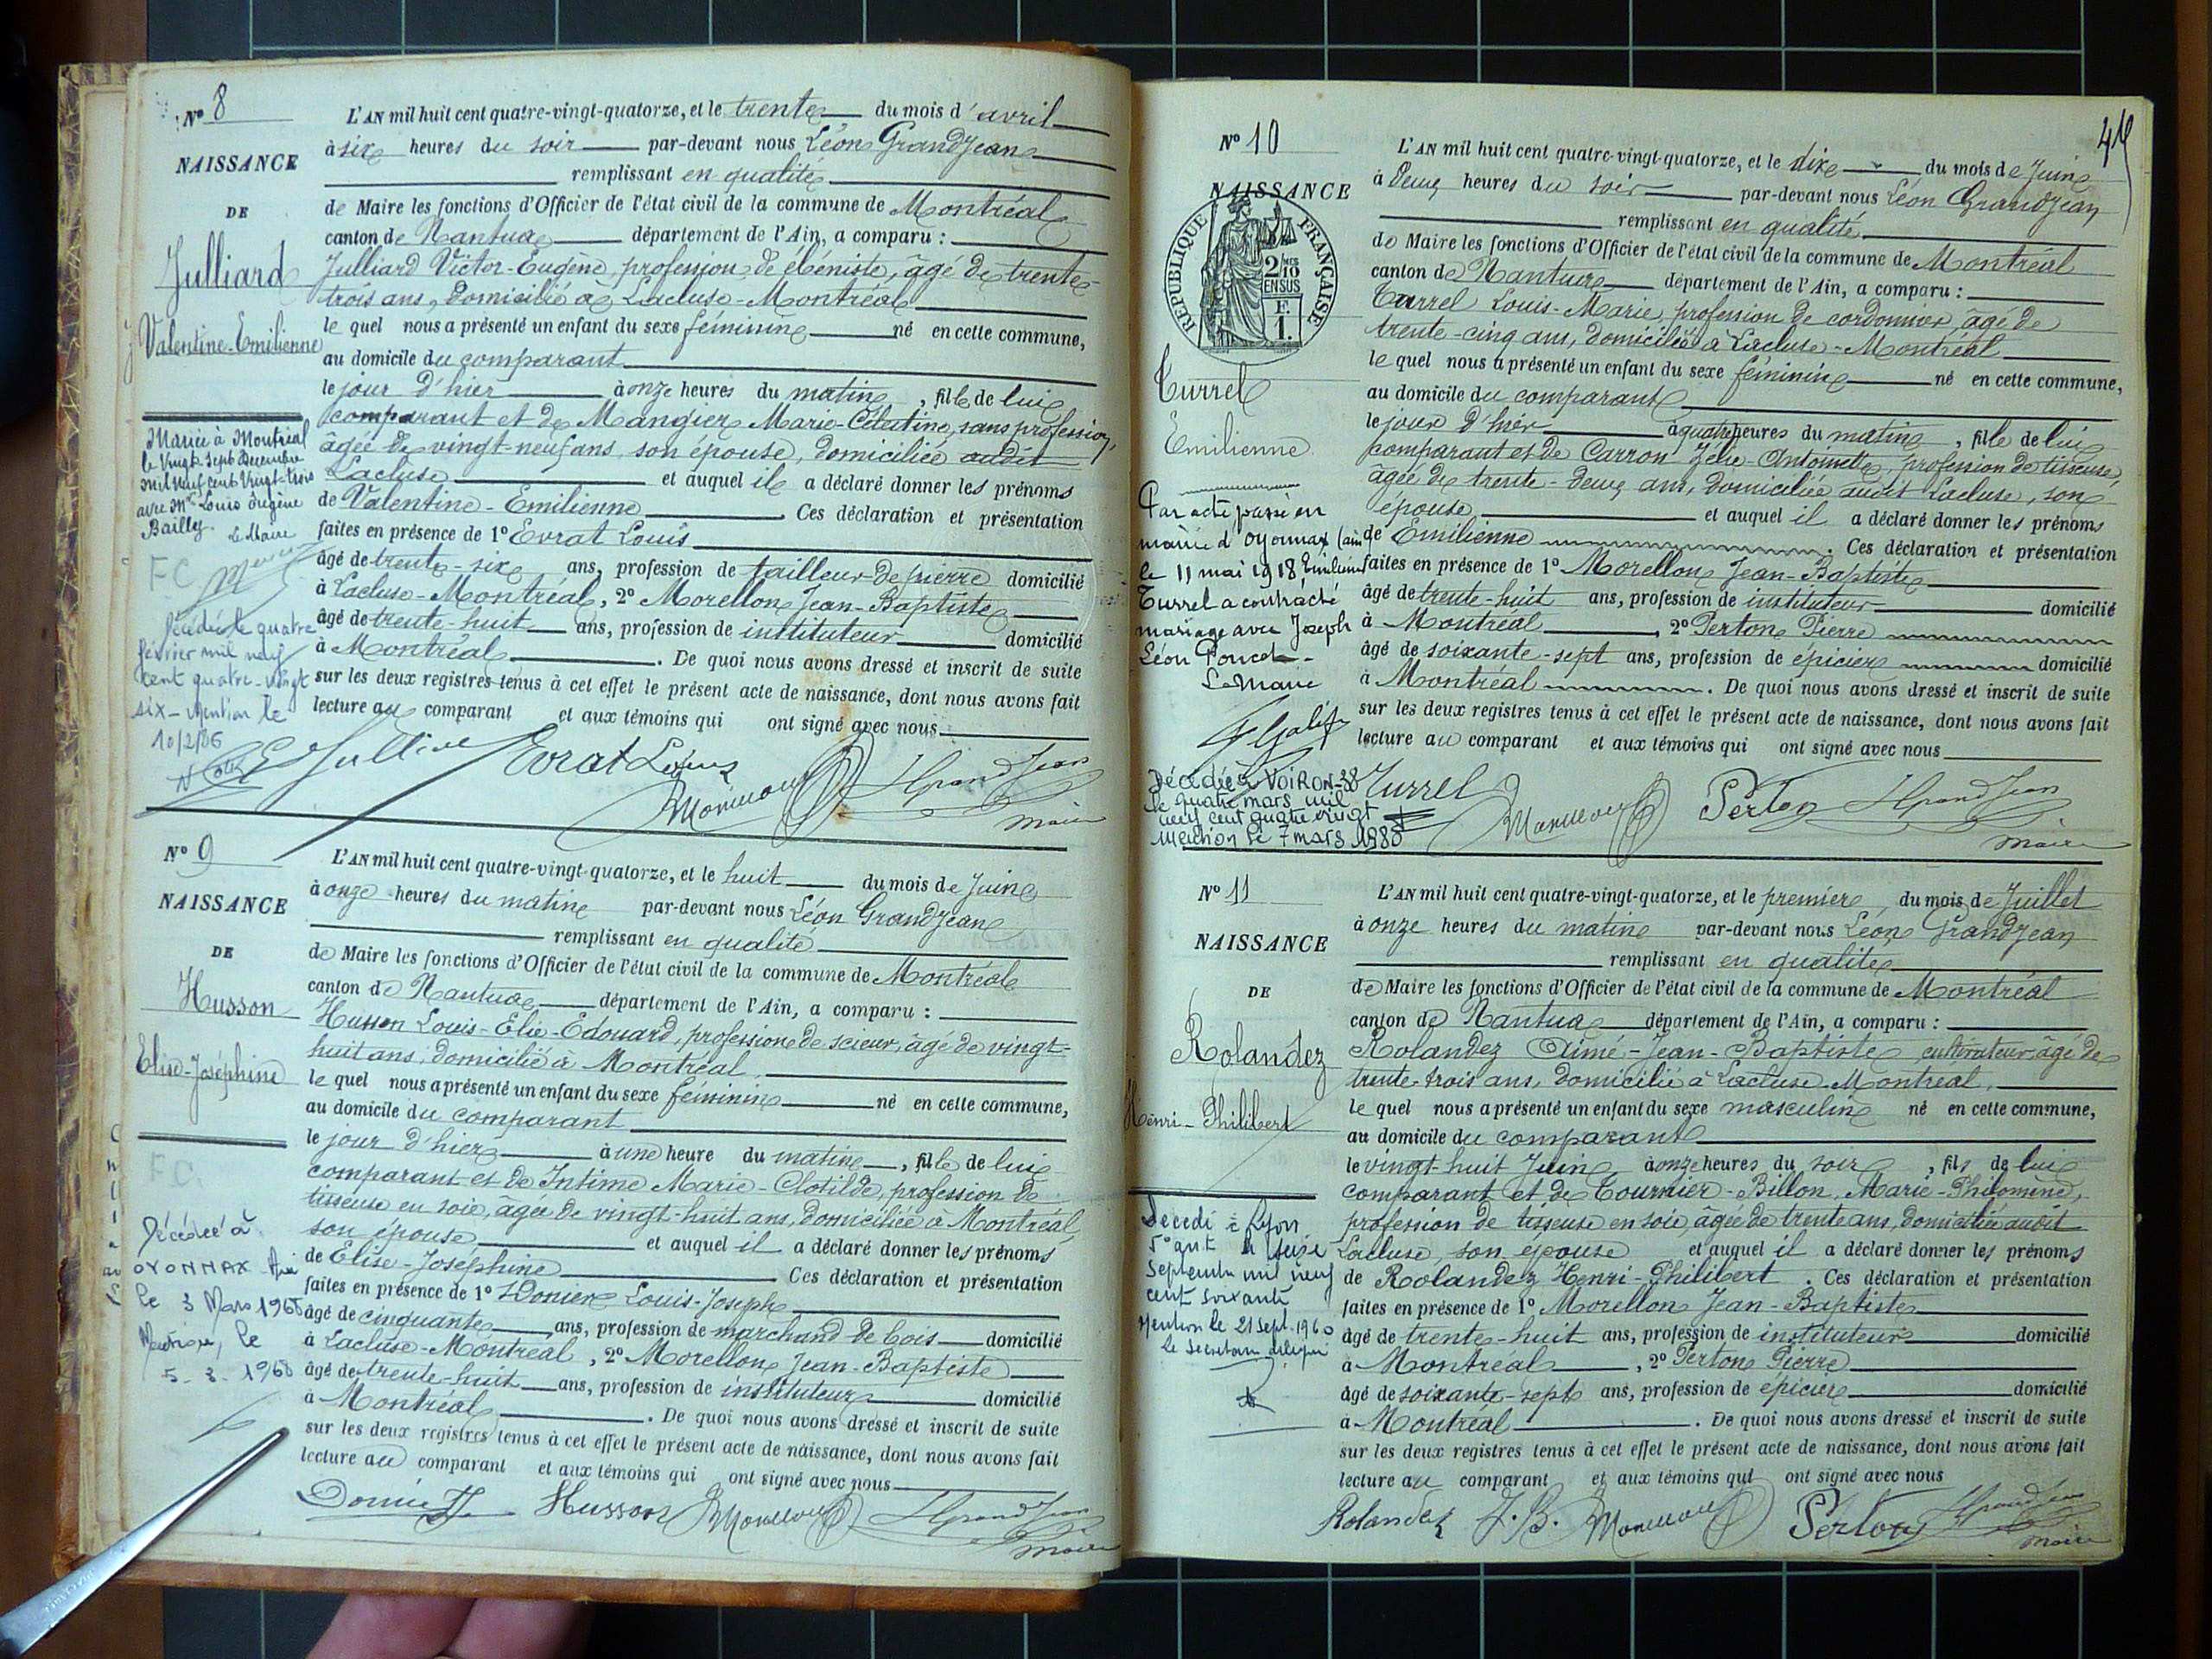 N° 8
NAISSANCE
DE
Julliard
Valentine-Emilienne
Mariée à Montréal
le Vingt Sept Decembre
mil neuf cent Vingt-trois
avec Mr Louis Eugène
Bailly.
Le Maire
FC
Décédée le quatre
février mil neuf
cent quatre-vingt
six - Mention le
10/2/86
L'AN mil huit cent quatre-vingt-quatorze, et le trente du mois d'avril
à six heures du soir par-devant nous Léon Grandjean
remplissant en qualité
de Maire les fonctions d'Officier de l'état civil de la commune de Montréal
canton de Nantua département de l'Ain, a comparu :
Julliard Victor-Eugène, profession de ébéniste, âgé de trente-
trois ans, domicilié à Lacluse-Montréal
le quel nous a présenté un enfant du sexe féminin né en cette commune,
au domicile du comparant
le jour d'hier à onze heures du matin, fille de lui
comparant et de Mangier Marie-Célestine, sans profession,
âgée de vingt-neuf ans, son épouse, domiciliée audit
Lacluse et auquel il a déclaré donner les prénoms
de Valentine-Emilienne. Ces déclaration et présentation
faites en présence de 1° Evrat Louis
âgé de trente-six ans, profession de tailleur de pierre domicilié
à Lacluse-Montréal, 2° Morellon Jean-Baptiste
âgé de trente-huit ans, profession de instituteur domicilié
à Montréal. De quoi nous avons dressé et inscrit de suite
sur les deux registres tenus à cet effet le présent acte de naissance, dont nous avons fait
lecture au comparant et aux témoins qui ont signé avec nous
E Julliard Evrat Louis Morellon LGrandJean
maire
N° 9
NAISSANCE
DE
Husson
Elise-Joséphine
FC.
Décédée à
OYONNAX Ain
le 3 Mars 1968
Mention, le
5. 3. 1968
L'AN mil huit cent quatre-vingt-quatorze, et le huit du mois de Juin
à onze heures du matin par-devant nous Léon Grandjean
remplissant en qualité
de Maire les fonctions d'Officier de l'état civil de la commune de Montréal
canton de Nantua département de l'Ain, a comparu :
Husson Louis-Elie-Edouard, profession de scieur, âgé de vingt-
huit ans, domicilié à Montréal
le quel nous a présenté un enfant du sexe féminin né en cette commune,
au domicile du comparant
le jour d'hier à une heure du matin, fille de lui
comparant et de Intime Marie-Clotilde, profession de
tisseuse en soie, âgée de vingt-huit ans, domiciliée à Montréal,
son épouse et auquel il a déclaré donner les prénoms
de Elise-Joséphine Ces déclaration et présentation
faites en présence de 1° Donier Louis-Joseph
âgé de cinquante ans, profession de marchand de bois domicilié
à Lacluse-Montréal, 2° Morellon Jean-Baptiste
âgé de trente-huit ans, profession de instituteur domicilié
à Montréal. De quoi nous avons dressé et inscrit de suite
sur les deux registres tenus à cet effet le présent acte de naissance, dont nous avons fait
lecture au comparant et aux témoins qui ont signé avec nous
Husson Morellon LGrandJean
maire
N° 10
NAISSANCE
RÉPUBLIQUE FRANÇAISE
2/10
EN SUS
F.
1.
Turrel
Emilienne
Par acte passé en
mairie d'Oyonnax (Ain
le 11 mai 1918 Emilienne
Turrel a contracté
mariage avec Joseph
Léon Poncet.
Le Maire
Décédée à VOIRON-38
le quatre mars mil
neuf cent quatre vingt
Mention le 7 mars 1980
L'AN mil huit cent quatre-vingt-quatorze, et le dix du mois de Juin
à deux heures du soir par-devant nous Léon Grandjean
remplissant en qualité
de Maire les fonctions d'Officier de l'état civil de la commune de Montréal
canton de Nantua département de l'Ain, a comparu :
Turrel Louis-Marie, profession de cordonnier, âgé de
trente-cinq ans, domicilié à Lacluse-Montréal
le quel nous a présenté un enfant du sexe féminin né en cette commune,
au domicile du comparant
le jour d'hier à quatre heures du matin, fille de lui
comparant et de Carron Zélie-Antoinette, profession de tisseuse,
âgée de trente-deux ans, domiciliée audit Lacluse, son
épouse et auquel il a déclaré donner les prénoms
de Emilienne. Ces déclaration et présentation
faites en présence de 1° Morellon Jean-Baptiste
âgé de trente-huit ans, profession de instituteur domicilié
à Montréal, 2° Perton Pierre
âgé de soixante-sept ans, profession de épicier domicilié
à Montréal. De quoi nous avons dressé et inscrit de suite
sur les deux registres tenus à cet effet le présent acte de naissance, dont nous avons fait
lecture au comparant et aux témoins qui ont signé avec nous
Turrel Morellon Perton LGrandJean
maire
N° 11
NAISSANCE
DE
Rolandez
Henri-Philibert
Décédé à Lyon
5° art le seize
Septembre mil neuf
cent soixante
Mention le 21 Sept. 1960
Le secrétaire délégué
L'AN mil huit cent quatre-vingt-quatorze, et le premier du mois de Juillet
à onze heures du matin par-devant nous Léon Grandjean
remplissant en qualité
de Maire les fonctions d'Officier de l'état civil de la commune de Montréal
canton de Nantua département de l'Ain, a comparu :
Rolandez Aimé-Jean-Baptiste, cultivateur, âgé de
trente-trois ans, domicilié à Lacluse-Montréal,
le quel nous a présenté un enfant du sexe masculin né en cette commune,
au domicile du comparant
le vingt-huit Juin à onze heures du soir, fils de lui
comparant et de Tournier-Billon, Marie-Philomène,
profession de tisseuse en soie, âgée de trente ans, domiciliée audit
Lacluse, son épouse et auquel il a déclaré donner les prénoms
de Rolandez Henri-Philibert. Ces déclaration et présentation
faites en présence de 1° Morellon Jean-Baptiste
âgé de trente-huit ans, profession de instituteur domicilié
à Montréal, 2° Perton Pierre
âgé de soixante-sept ans, profession de épicier domicilié
à Montréal. De quoi nous avons dressé et inscrit de suite
sur les deux registres tenus à cet effet le présent acte de naissance, dont nous avons fait
lecture au comparant et aux témoins qui ont signé avec nous
Rolandez J.B. Morellon Perton LGrandJean
maire